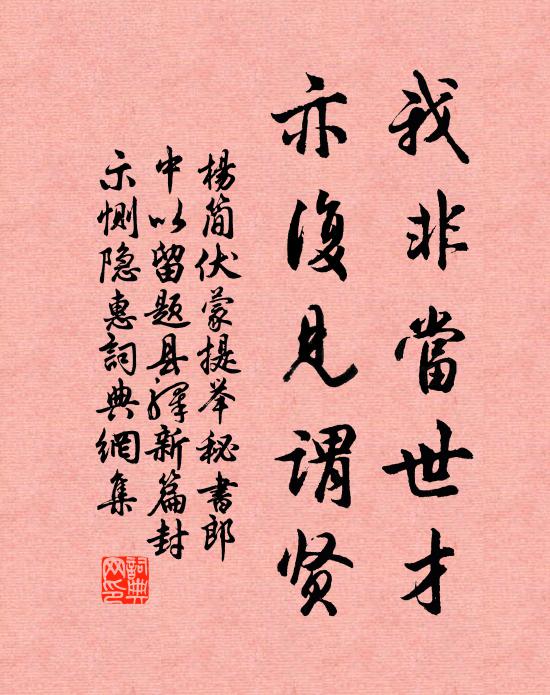 我非當世才
亦復見谓贤
楊简伏蒙提举秘書郎
中以留题县驿新篇封
示恻隐惠詞典網集
詞典网印